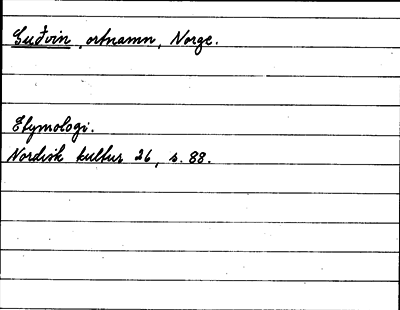 Guðvin, ortnamn, Norge.
Etymologi.
Nordisk kultur 26, s. 88.